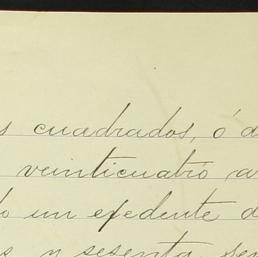 s cuadrados, ó d
veinticuatro a
o un efedente d
s y sesenta